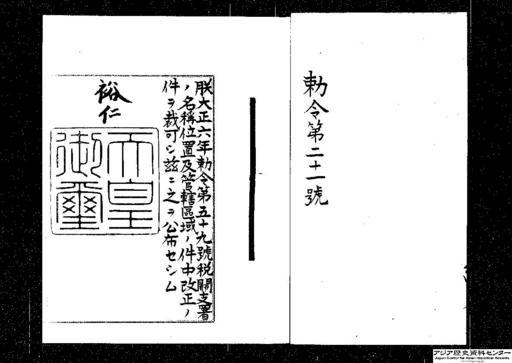 勅令第二十一號
朕大正六年勅令第五十九號税關支署
ノ名稱位置及管轄區域ノ件中改正ノ
件ヲ裁可シ茲ニ之ヲ公布セシム
裕仁
天皇
御璽
アジア歴史資料センター
Japan Center for Asian Historical Records